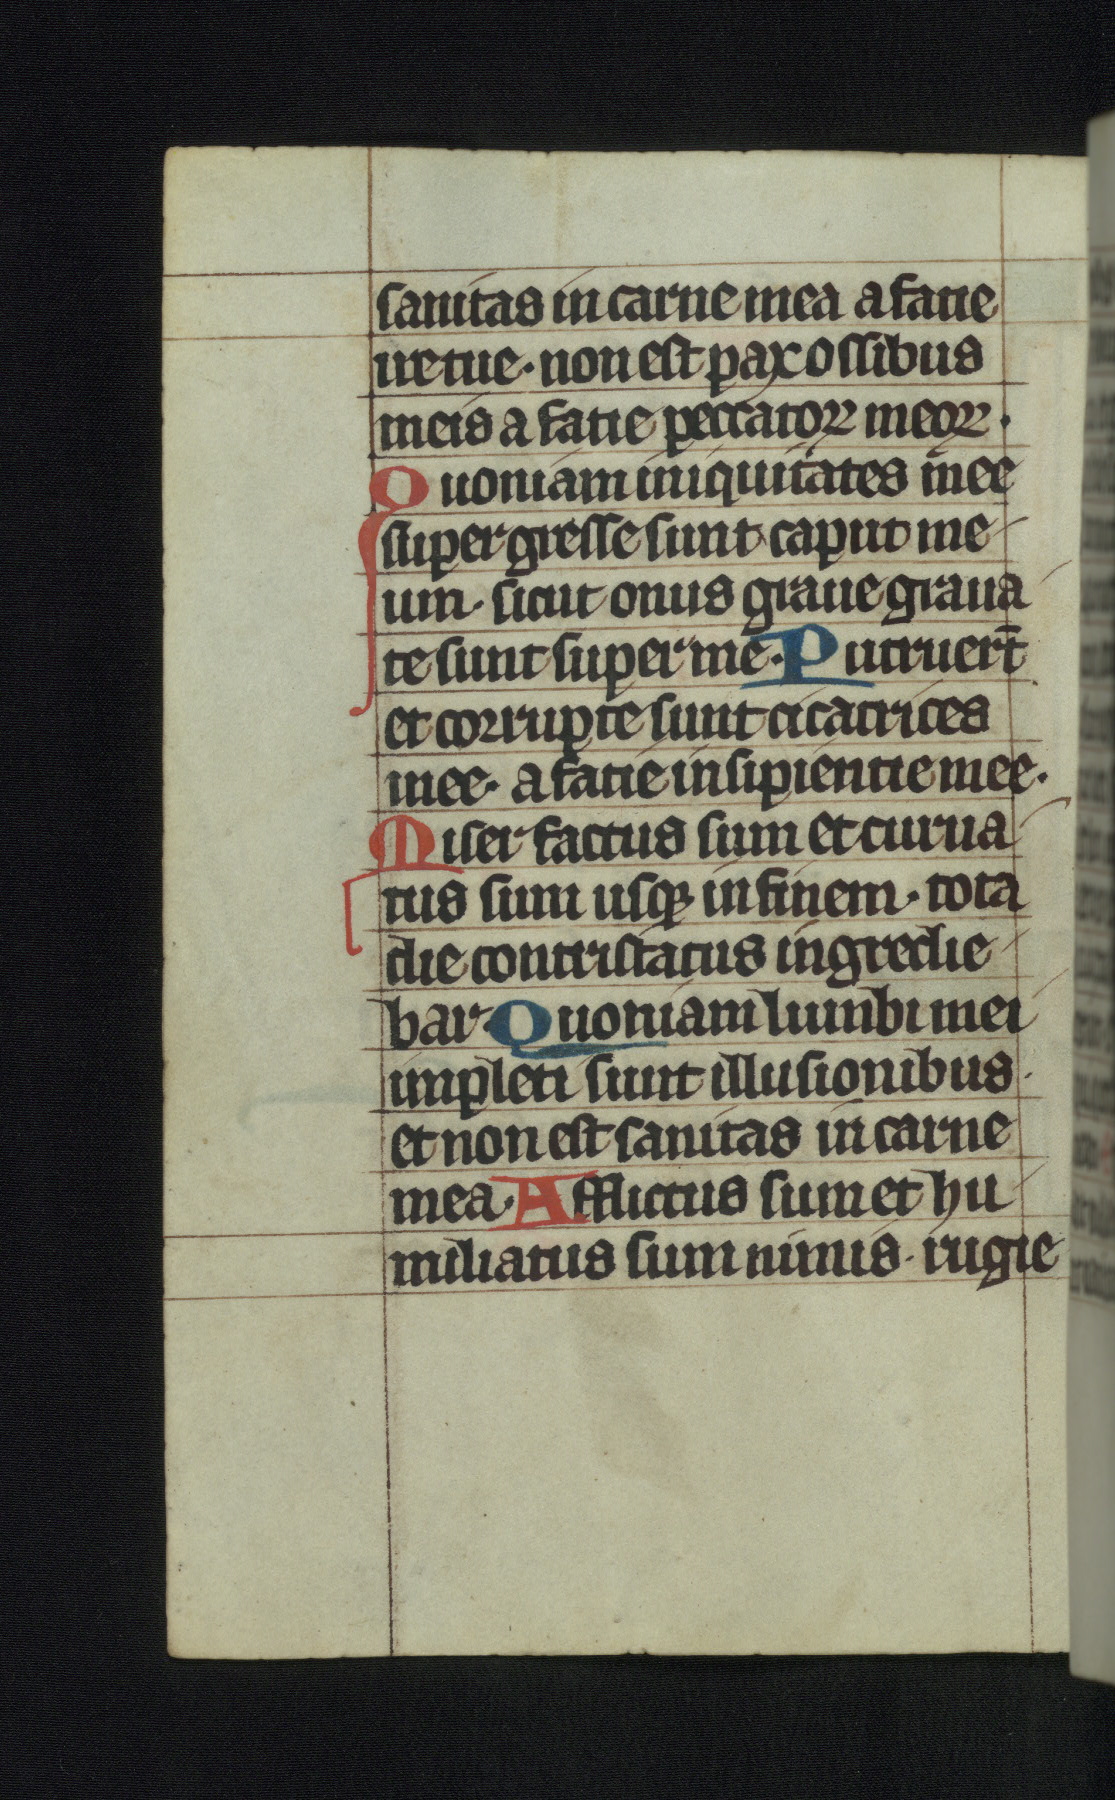 sanitas in carne mea a facie
ire tue · non est pax ossibus
meis a facie peccatoꝝ meoꝝ ·
Quoniam iniquitates mee
supergresse sunt caput me
um · sicut onus graue graua
te sunt super me · Putruert̄
et corrupte sunt cicatrices
mee · a facie insipientie mee ·
Miser factus sum et curua
tus sum usqꝫ in finem · tota
die contristatus ingredie
bar Quoniam lumbi mei
impleti sunt illusionibus ·
et non est sanitas in carne
mea · Afflictus sum et hu
miliatus sum nimis · rugie